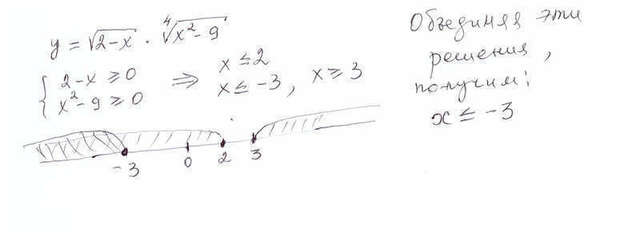 y = √(2-x) · ∜(x²-9)
{ 2-x ≥ 0
x²-9 ≥ 0
⇒ x ≤ 2
x ≤ -3, x ≥ 3
-3 0 2 3
Объединяя эти
решения,
получим:
x ≤ -3